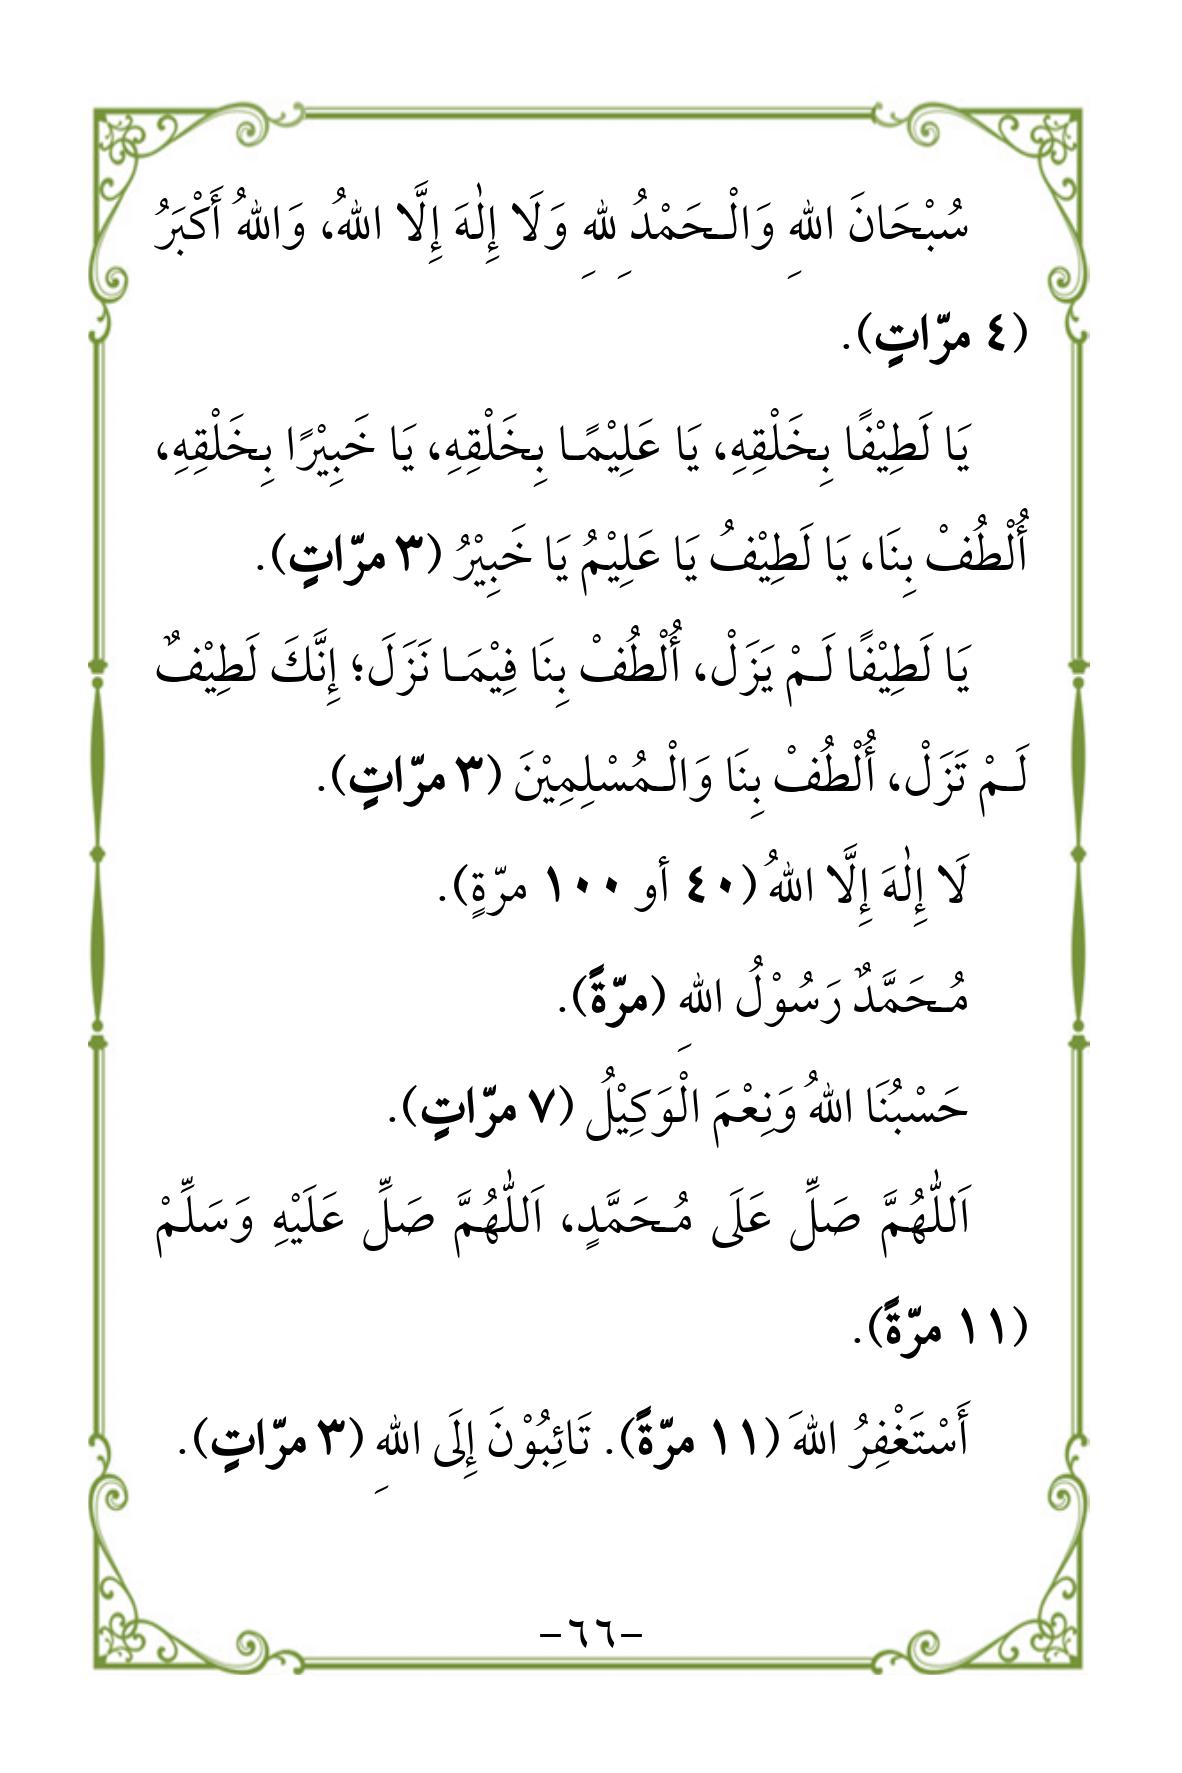 سُبْحَانَ اللهِ وَالْـحَمْدُ لِلهِ وَلَا إِلٰهَ إِلَّا اللهُ، وَاللهُ أَكْبَرُ
(٤ مرّاتٍ).
يَا لَطِيْفًا بِخَلْقِهِ، يَا عَلِيْمًـا بِخَلْقِهِ، يَا خَبِيْرًا بِخَلْقِهِ،
أُلْطُفْ بِنَا، يَا لَطِيْفُ يَا عَلِيْمُ يَا خَبِيْرُ (٣ مرّاتٍ).
يَا لَطِيْفًا لَـمْ يَزَلْ، أُلْطُفْ بِنَا فِيْمَـا نَزَلَ؛ إِنَّكَ لَطِيْفٌ
لَـمْ تَزَلْ، أُلْطُفْ بِنَا وَالْـمُسْلِمِيْنَ (٣ مرّاتٍ).
لَا إِلٰهَ إِلَّا اللهُ (٤٠ أو ١٠٠ مرّةٍ).
مُـحَمَّدٌ رَسُوْلُ اللهِ (مرّةً).
حَسْبُنَا اللهُ وَنِعْمَ الْوَكِيْلُ (٧ مرّاتٍ).
اَللّٰهُمَّ صَلِّ عَلَى مُـحَمَّدٍ، اَللّٰهُمَّ صَلِّ عَلَيْهِ وَسَلِّمْ
(١١ مرّةً).
أَسْتَغْفِرُ اللهَ (١١ مرّةً). تَائِبُوْنَ إِلَى اللهِ (٣ مرّاتٍ).
-٦٦-